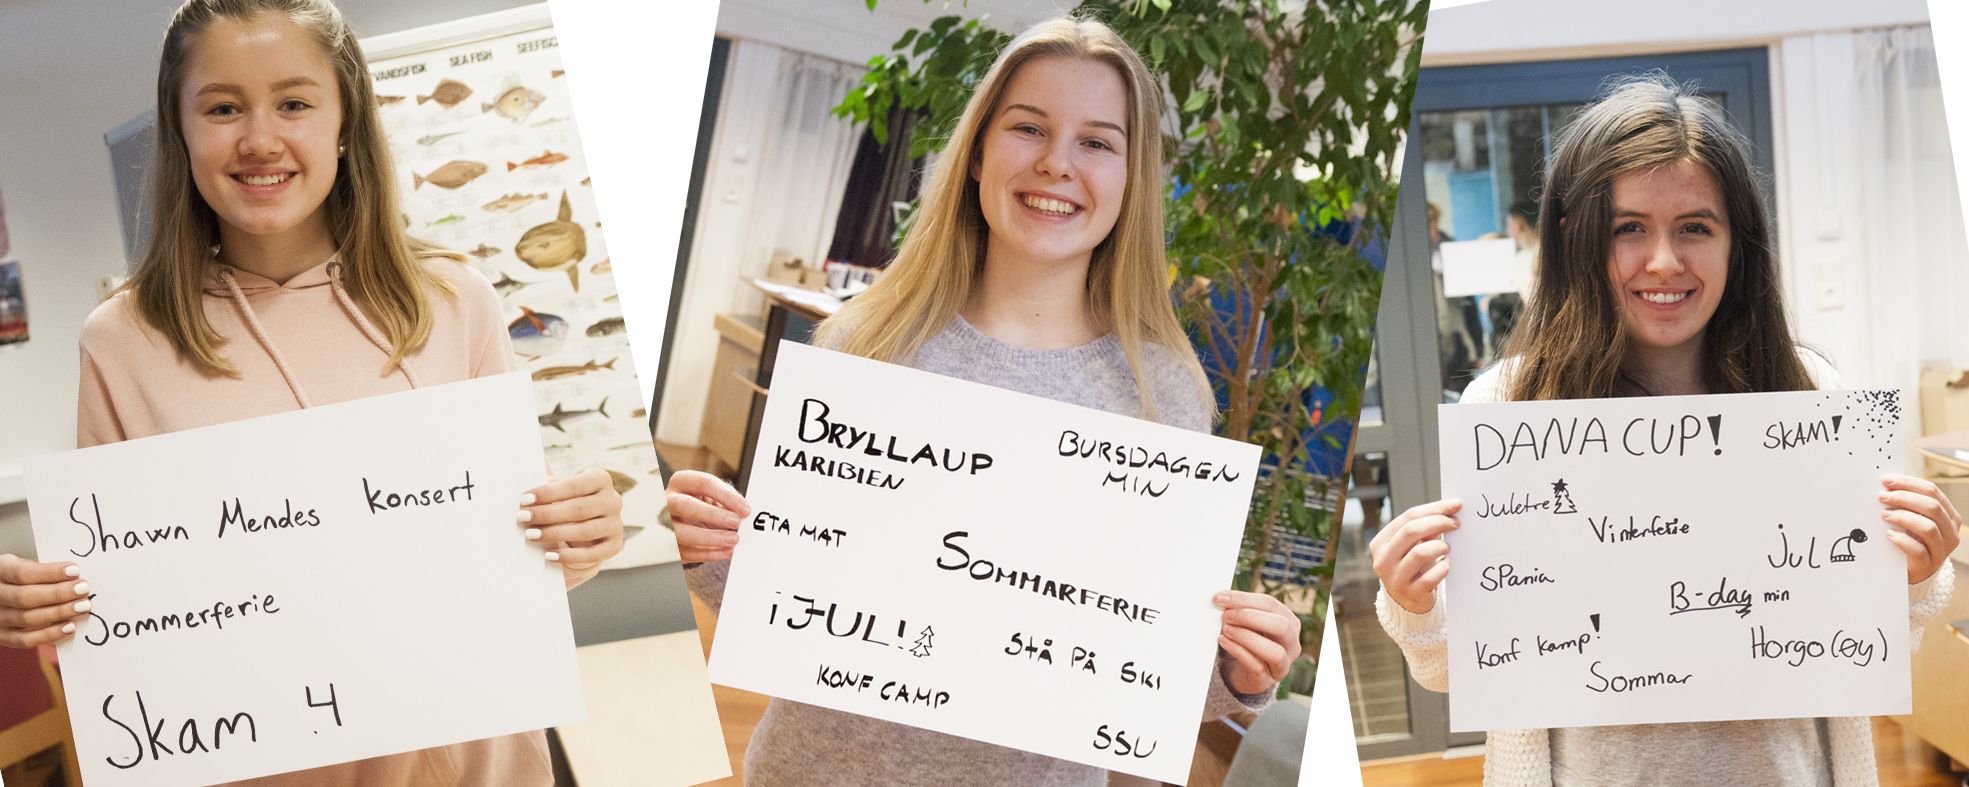 VANDSFISK SEA FISH SEEFISC
Shawn Mendes konsert
Sommerferie
Skam 4
BRYLLAUP
KARIBIEN
BURSDAGEN
MIN
ETA MAT
SOMMARFERIE
i JUL!
STÅ PÅ SKI
KONF CAMP
SSU
DANA CUP!
SKAM!
Juletre
Vinterferie
JUL
SPania
B-day min
Konf kamp!
Horgo (øy)
Sommar